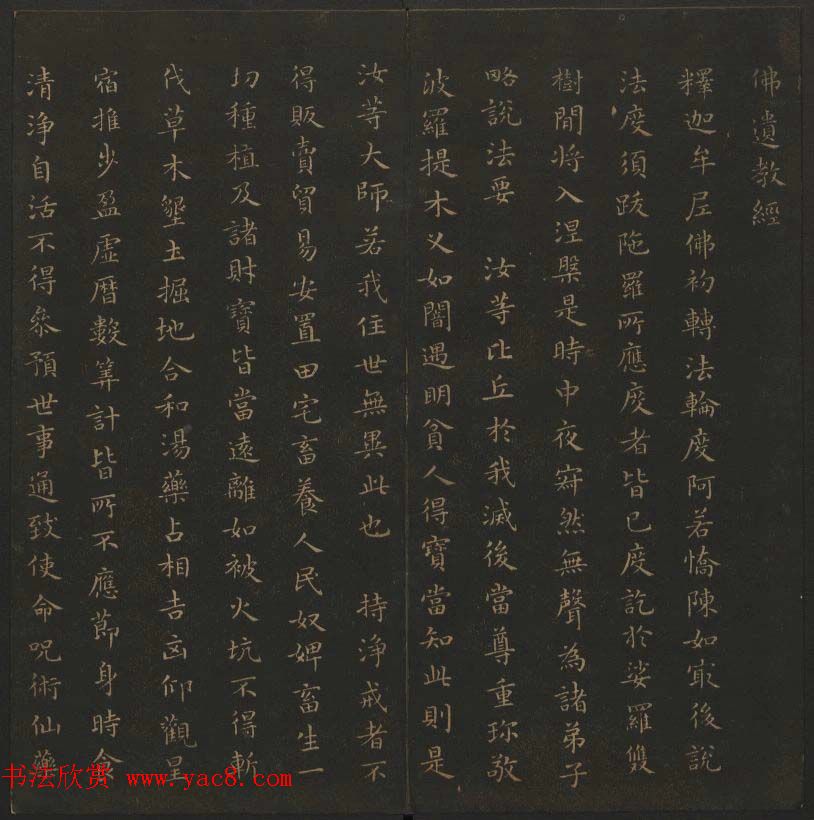 佛遺教經
釋迦牟尼佛初轉法輪度阿若憍陳如最後說
法度須跋陁羅所應度者皆已度訖於娑羅雙
樹間將入涅槃是時中夜寂然無聲為諸弟子
略說法要　汝等比丘於我滅後當尊重珎敬
波羅提木叉如闇遇明貧人得寶當知此則是
汝等大師若我住世無異此也　持淨戒者不
得販賣貿易安置田宅畜養人民奴婢畜生一
切種植及諸財寶皆當遠離如被火坑不得斬
伐草木墾土掘地合和湯藥占相吉凶仰觀星
宿推步盈虛曆數筭計皆所不應節身時食
清淨自活不得參預世事通致使命呪術仙藥
书法欣赏 www.yac8.com